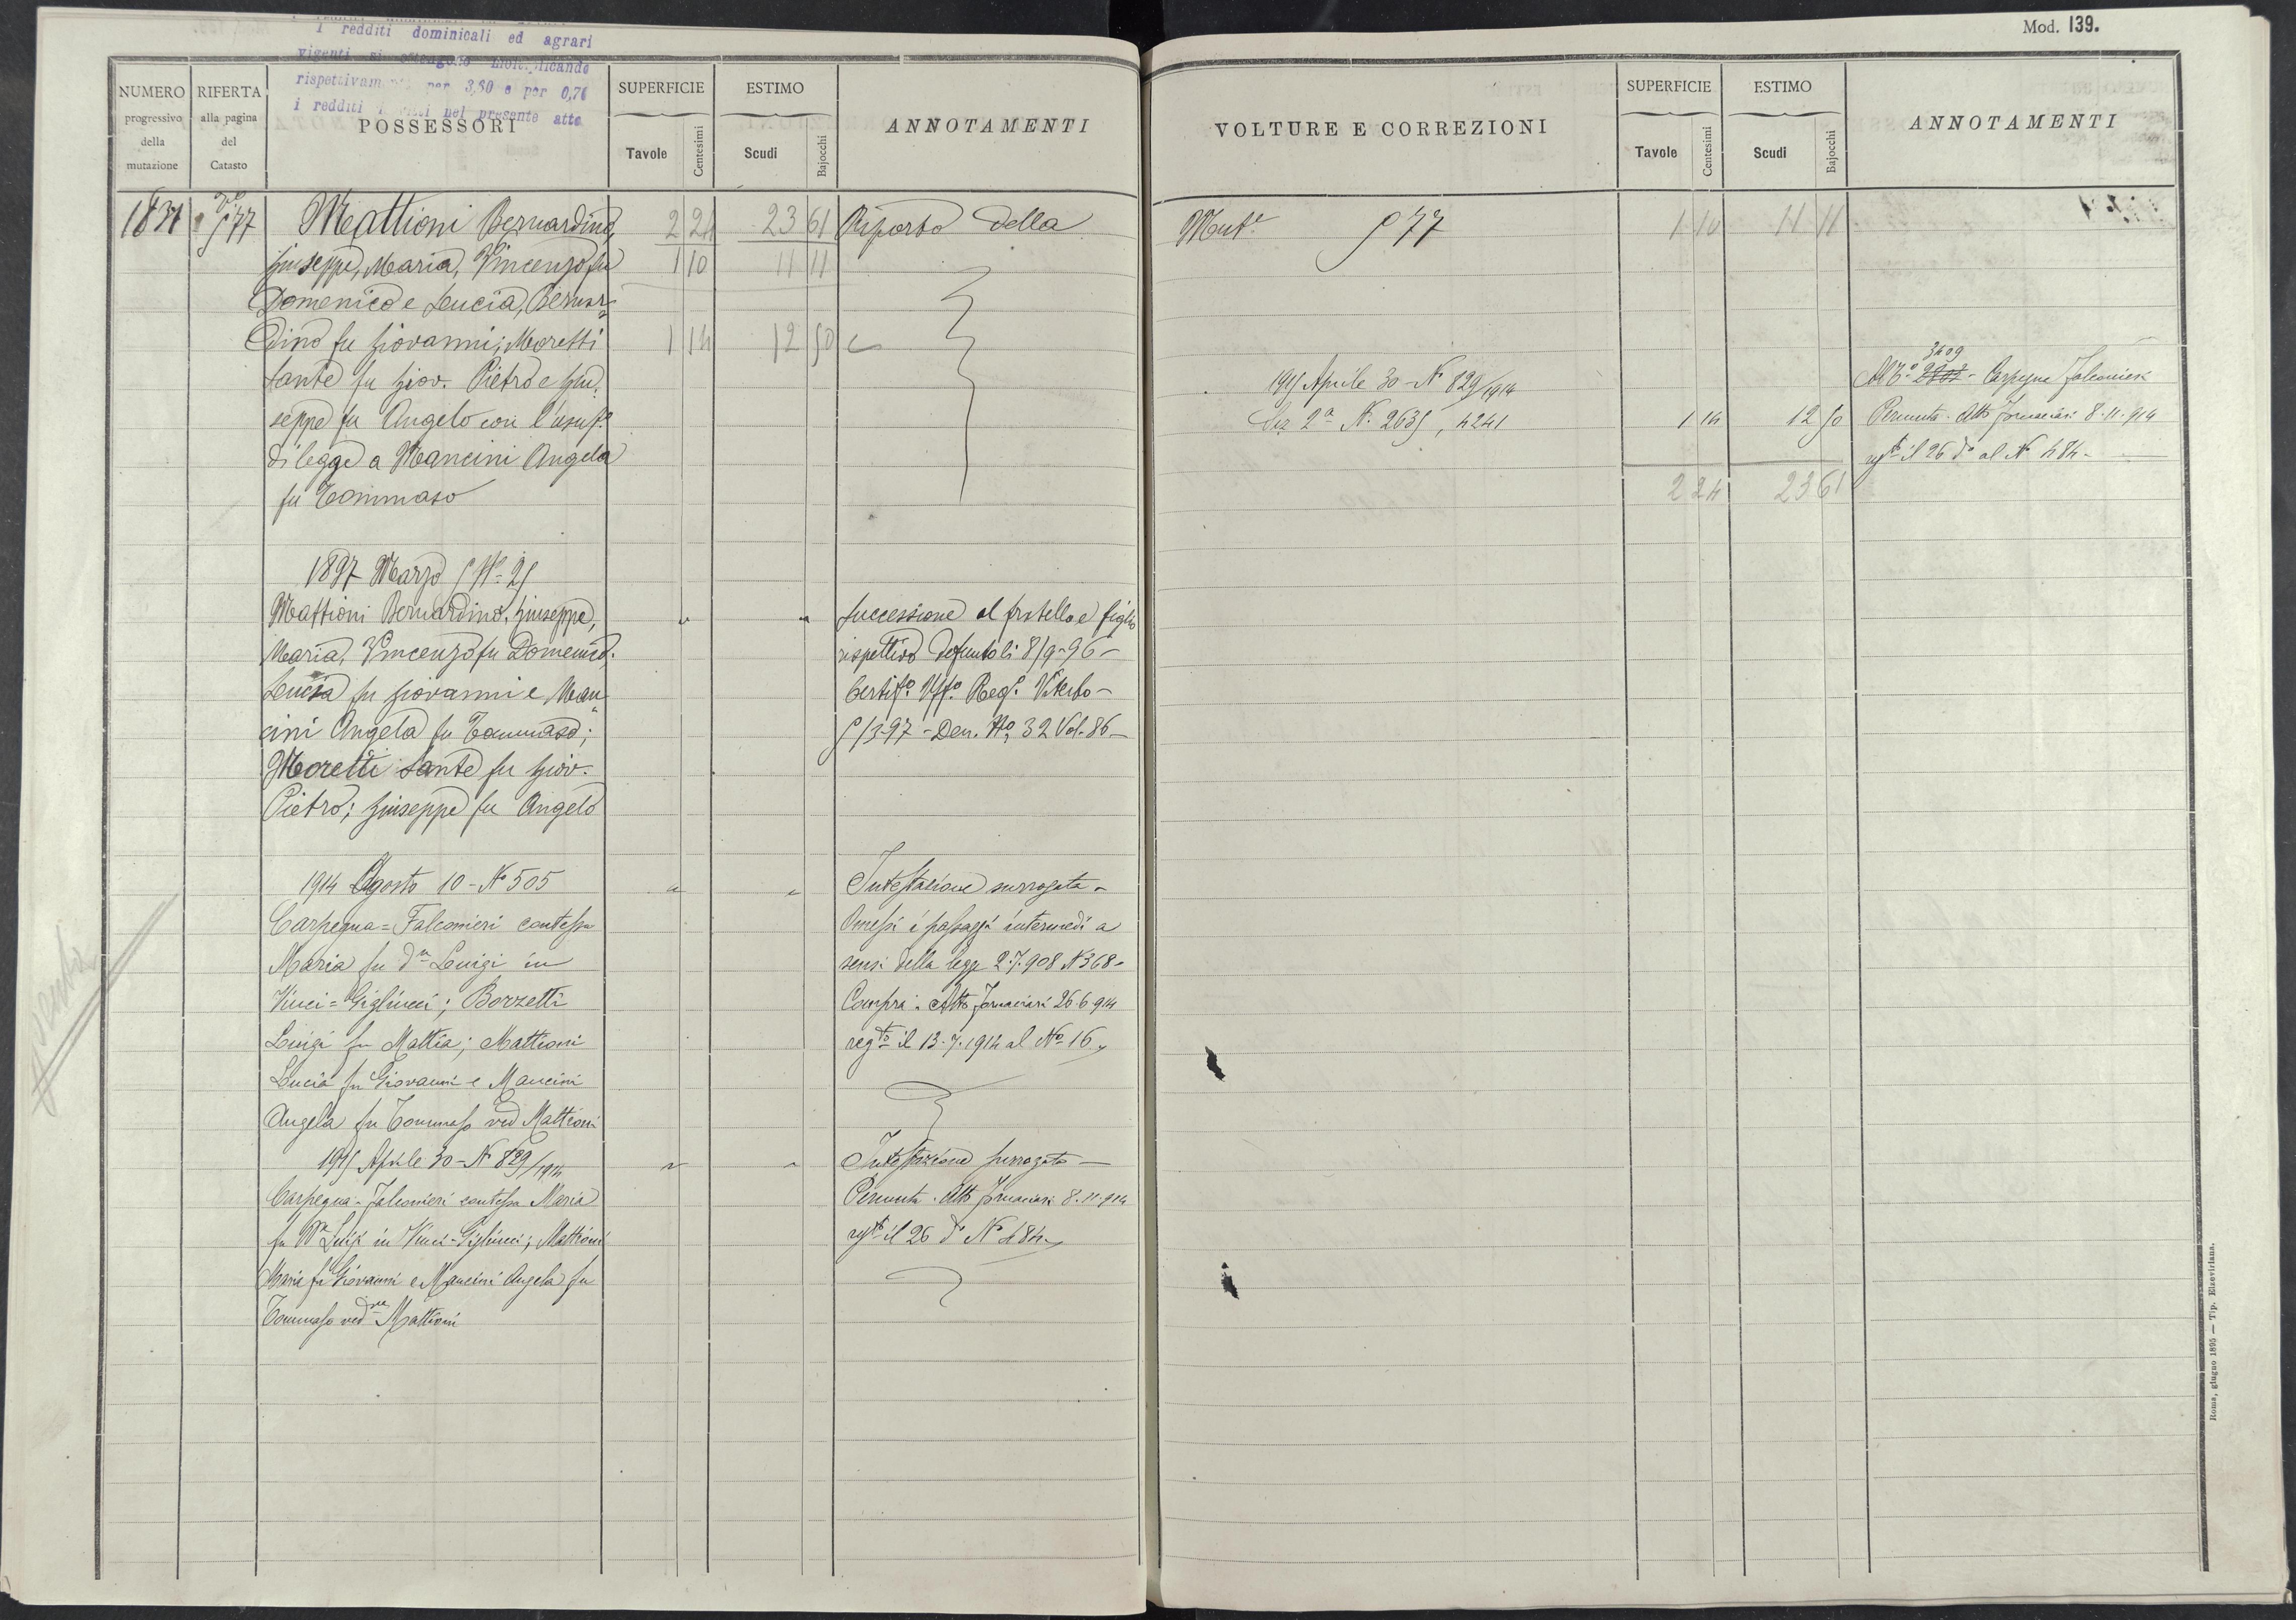 Mod. 139.
I redditi dominicali ed agrari
vigenti si ottengono moltiplicando
rispettivamente per 3,60 e per 0,76
i redditi nel presente atto
NUMERO progressivo della mutazione
RIFERTA alla pagina del Catasto
POSSESSORI
SUPERFICIE
Tavole
Centesimi
ESTIMO
Scudi
Bajocchi
ANNOTAMENTI
1831 577 Mattioni Bernardino, 2 24 23 61 Riporto della
Giuseppe, Maria, Vincenzo fu 1 10 11 11
Domenico e Lucia, Bernar-
dino fu Giovanni; Moretti 1 14 12 50
Sante fu Giov. Pietro e Giu-
seppe fu Angelo con l'usufo
di legge a Mancini Angela
fu Tommaso
1897 Marzo 5 No 25
Mattioni Bernardino, Giuseppe, " " Successione al fratello e figlio
Maria, Vincenzo fu Domenico. rispettivo defunto li 8/9-96-
Lucia fu Giovanni e Man- Certifo. Uffo. Rego. Viterbo-
cini Angela fu Tommaso; 5/3-97 - Den. No. 32 Vol. 86-
Moretti Sante fu Giov.
Pietro; Giuseppe fu Angelo
1914 Agosto 10 - No 505 " " Intestazione surrogata -
Carpegna=Falconieri contessa Omessi i passaggi intermedi a
Maria fu Dn Luigi in sensi della legge 2.7.908 N 368-
Vinci=Gigliucci; Borzetti Compra: Atto Fornaciari 26.6.914
Luigi fu Mattia; Mattioni regto il 13.7.1914 al No 16
Lucia fu Giovanni e Mancini
Angela fu Tommaso ved Mattioni
1915 Aprile 30 - No 829/1914 " " Intestazione surrogata -
Carpegna-Falconieri contessa Maria Permuta. Atto Fornaciari 8.11.914
fu Dn Luigi in Vinci-Gigliucci; Mattioni regto il 26 do No 484
Maria fu Giovanni e Mancini Angela fu
Tommaso ved Mattioni
VOLTURE E CORREZIONI
SUPERFICIE
Tavole
Centesimi
ESTIMO
Scudi
Bajocchi
ANNOTAMENTI
Muta 577 1 10 11 11
3409
1915 Aprile 30 - No 829/1914 Al To 2802 - Carpegna Falconieri
Sez 2a No 2635, 4241 1 14 12 50 Permuta. Atto Fornaciari 8.11.914
regto il 26 do al No 484 -
2 24 23 61
Roma, giugno 1895 — Tip. Elzeviriana.